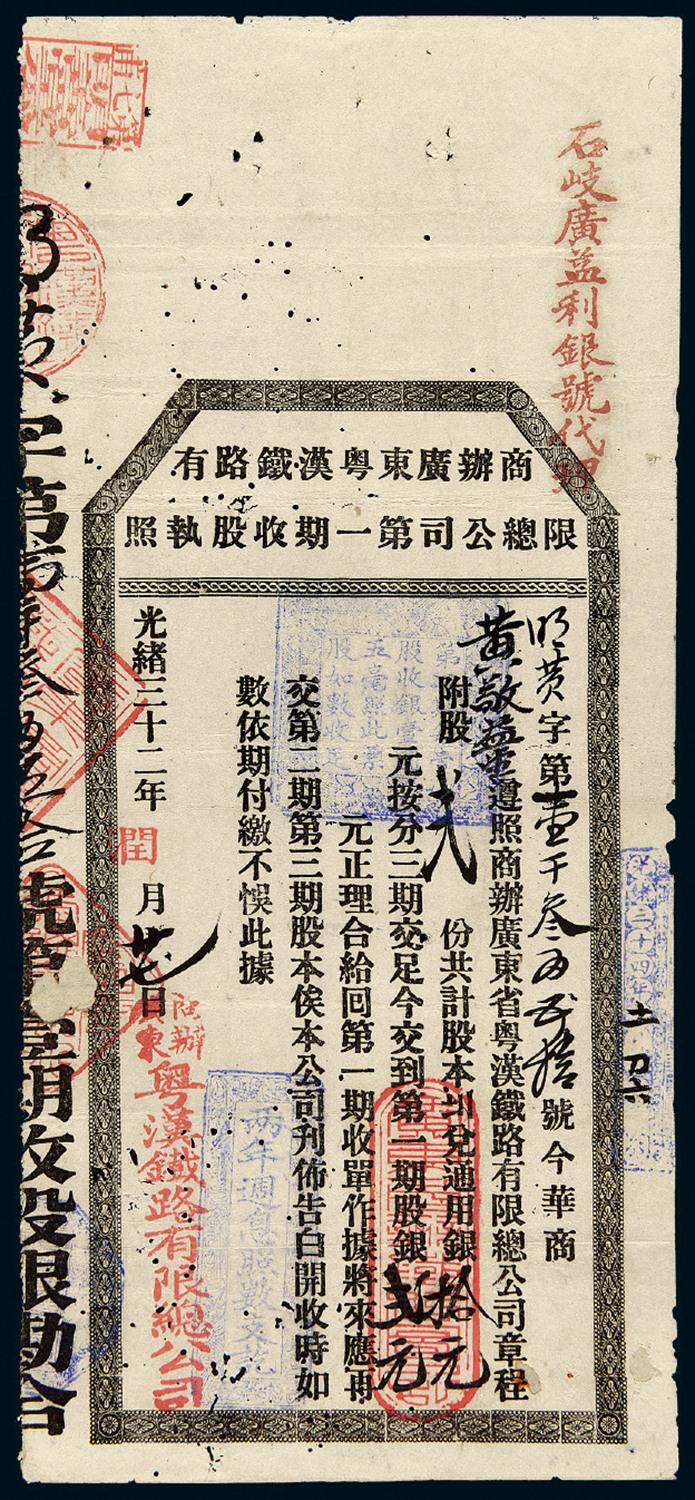 石岐廣益利銀號代理
商辦廣東粵漢鐵路有
限總公司第一期收股執照
字第壹千叁百貳拾號今華商
黃敬業遵照商辦廣東省粵漢鐵路有限總公司章程
附股弍份共計股本圳兌通用銀拾元
元按分三期交足今交到第一期股銀弍元
元正理合給回第一期收單作據將來應再
交第二期第三期股本俟本公司刊佈告白開收時如
數依期付繳不悞此據
光緒三十二年閏月廿七日
商辦廣東
粵漢鐵路有限總公司
兩年週息照數支訖
股收銀壹
五毫照此票
股如數收足
光緒三十四年
字第
號第壹期收股銀勘合